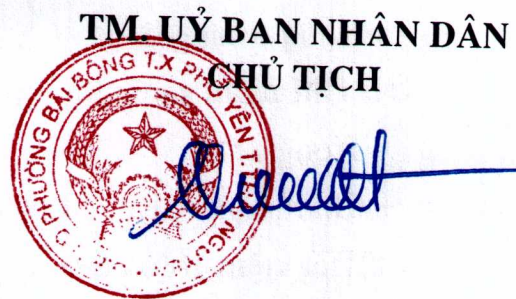 TM. UỶ BAN NHÂN DÂN
CHỦ TỊCH
PHƯỜNG BÃI BÔNG T.X PHỔ YÊN T. THÁI NGUYÊN